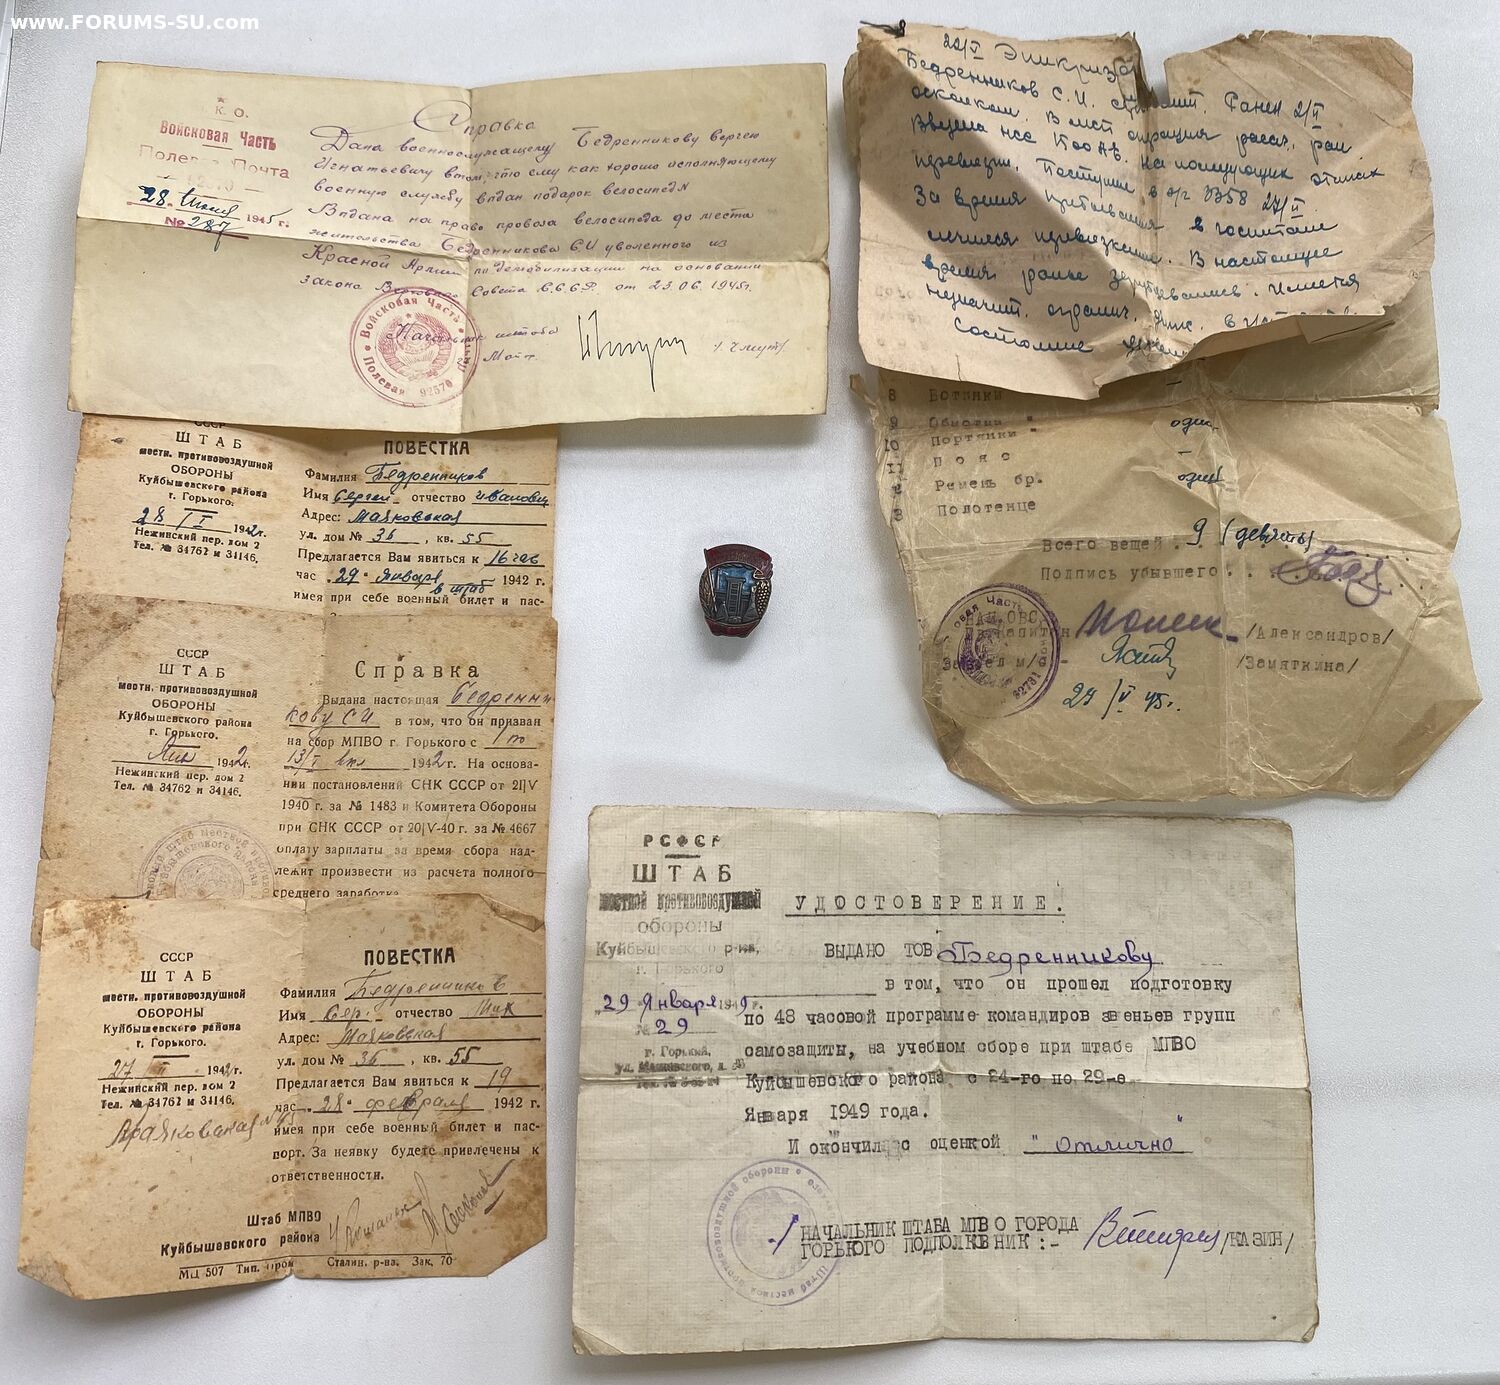 www.FORUMS-SU.com
К. О.
Войсковая Часть
Полевая Почта
28 Июня 1945 г.
№ 287
Справка
Дана военнослужащему Бедренникову Сергею
Игнатьевичу в том, что ему как хорошо исполняющему
военную службу выдан подарок велосипед №
Выдана на право провоза велосипеда до места
жительства Бедренникова С.И уволенного из
Красной Армии по демобилизации на основании
закона Верховного Совета С.С.С.Р. от 23.06.1945г.
Начальник штаба
Войсковая Часть
Полевая 92570
22/V Эпикриз
Бедренников С.И. Ранен 2/V
осколком.
перевязки. Поступил в э/г 3358 27/V.
За время пребывания в госпитале
лечился перевязками. В настоящее
время раны зарубцевались. Имеется
состояние
8 Ботинки
9 Обмотки " один
10 Портянки "
11 Пояс один
2 Ремень бр.
3 Полотенце
Всего вещей . 9 (девять)
Подпись убывшего . . .
/Александров/
/Замяткина/
24/V 45г.
СССР
ШТАБ
местн. противовоздушной
ОБОРОНЫ
Куйбышевского района
г. Горького.
28/I 1942г.
Нежинский пер. дом 2
Тел. № 34762 и 34146.
ПОВЕСТКА
Фамилия Бедренников
Имя Сергей отчество Иванович
Адрес: Маяковская
ул. дом № 36, кв. 55
Предлагается Вам явиться к 16 час
час. „29“ января 1942 г.
в штаб
имея при себе военный билет и пас-
СССР
ШТАБ
местн. противовоздушной
ОБОРОНЫ
Куйбышевского района
г. Горького.
1942г.
Нежинский пер. дом 2
Тел. № 34762 и 34146.
Справка
Выдана настоящая Бедренни
кову С И в том, что он призван
на сбор МПВО г. Горького с 1 по
13/I вкл 1942 г. На основа-
нии постановлений СНК СССР от 21/V
1940 г. за № 1483 и Комитета Обороны
при СНК СССР от 20/V-40 г. за № 4667
оплату зарплаты за время сбора над-
лежит произвести из расчета полного
среднего заработка.
СССР
ШТАБ
местн. противовоздушной
ОБОРОНЫ
Куйбышевского района
г. Горького.
27/II 1942г.
Нежинский пер. дом 2
Тел. № 34762 и 34146.
Маяковская
ПОВЕСТКА
Фамилия Бедренников
Имя Сер. отчество
Адрес: Маяковская
ул. дом № 36, кв. 55
Предлагается Вам явиться к 19
час. „28“ февраля 1942 г.
имея при себе военный билет и пас-
порт. За неявку будете привлечены к
ответственности.
Штаб МПВО
Куйбышевского района
МЦ 507 Тип. Пром Сталин. р-на. Зак. 70
РСФСР
ШТАБ
местной противовоздушной
обороны
Куйбышевского р-на,
г. Горького
29 Января 1949г.
№ 29
г. Горький,
УДОСТОВЕРЕНИЕ.
ВЫДАНО ТОВ Бедренникову
в том, что он прошел подготовку
по 48 часовой программе командиров звеньев групп
самозащиты, на учебном сборе при штабе МПВО
Куйбышевского района с 24-го по 29-е
Января 1949 года.
И окончил с оценкой "Отлично"
НАЧАЛЬНИК ШТАБА МПВО ГОРОДА
ГОРЬКОГО ПОДПОЛКВНИК :- /КАЗИН/